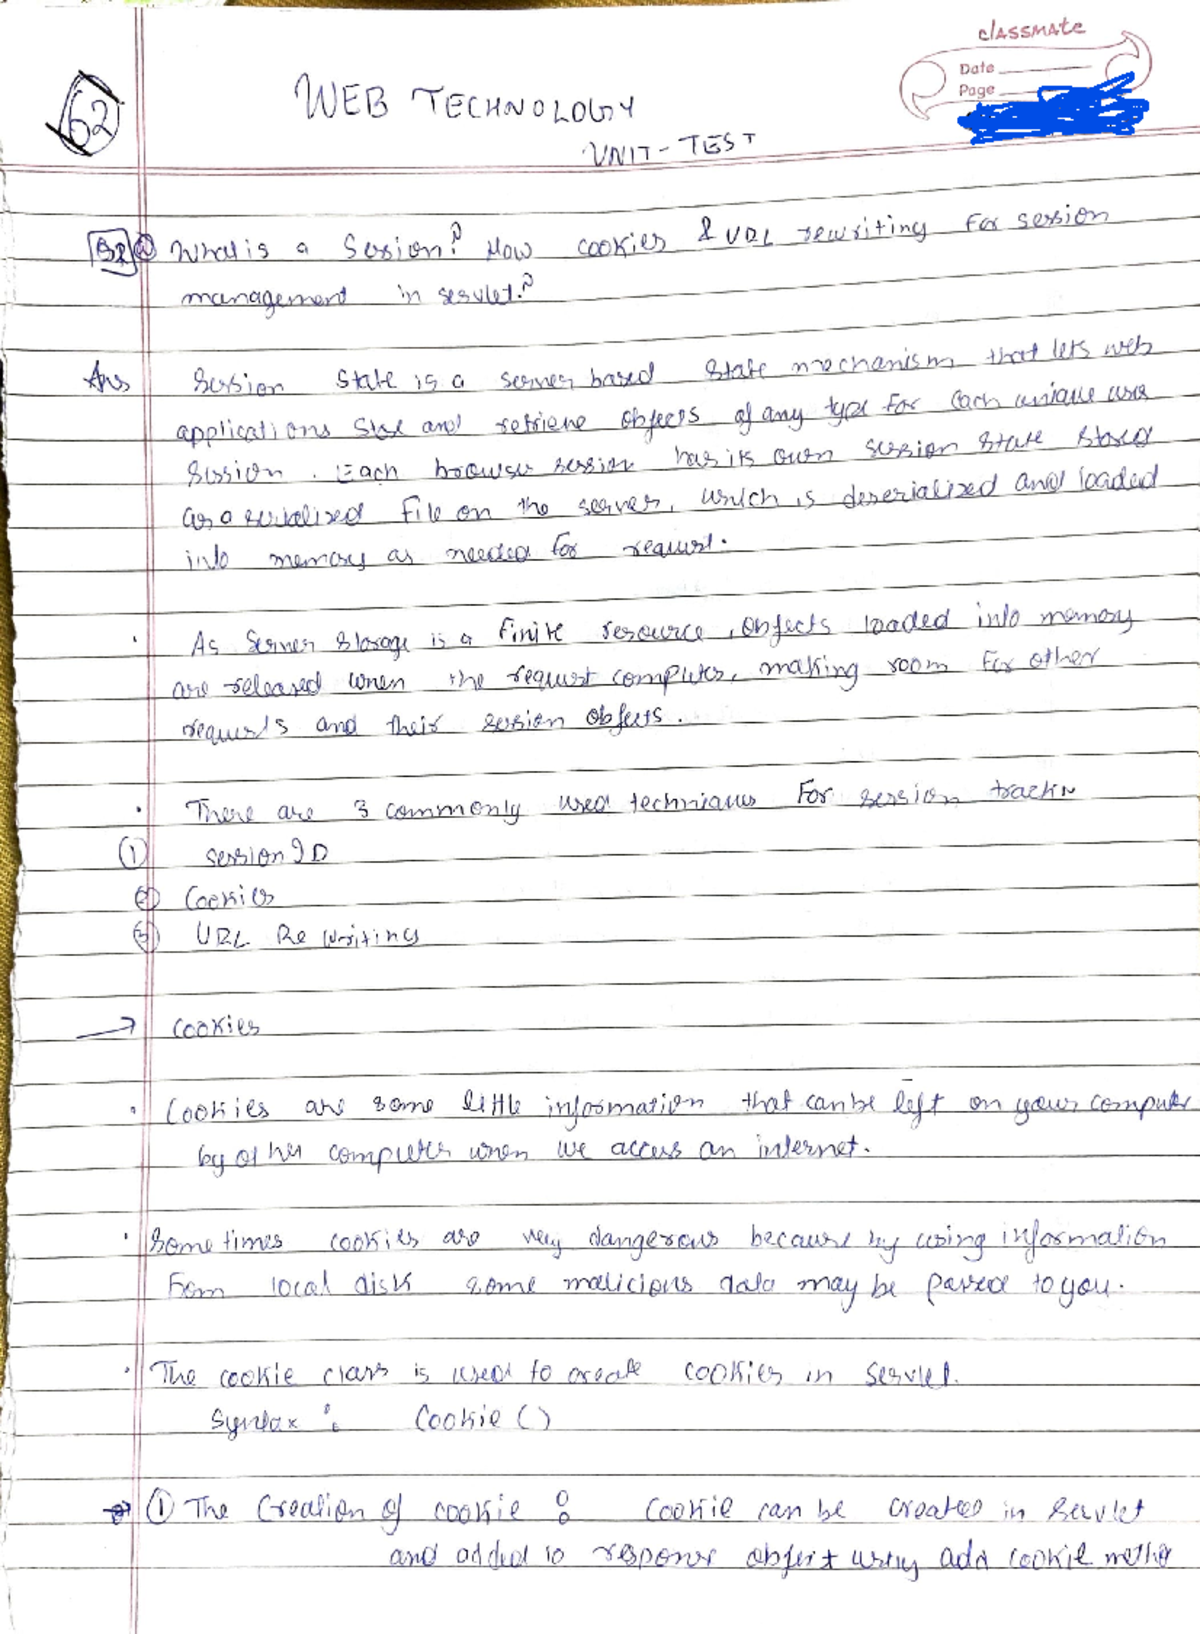 classmate
Date
Page
62
WEB TECHNOLOGY
UNIT-TEST
B2 a What is a Session? How cookies & URL rewriting For session
management in servlet?
Ans Session State is a server based State mechanism that lets web
applications store and retrieve objects of any type for Each unique user
Session. Each browser session has its own session State stored
as a serialized file on the server, which is deserialized and loaded
into memory as needed for request.
· As Server Storage is a finite resource, objects loaded into memory
are released when the request computes, making room For other
requests and their session objects.
· There are 3 commonly used techniques For session trackin
① session ID
② Cookies
③ URL Re writing
→ cookies
· Cookies are some little information that can be left on your computer
by other computer when we access an internet.
· Sometimes cookies are very dangerous because by using information
from local disk some malicious data may be passed to you.
· The cookie class is used to create cookies in Servlet.
Syntax : Cookie ()
① The Creation of cookie : Cookie can be created in Servlet
and added to response object using add cookie metho